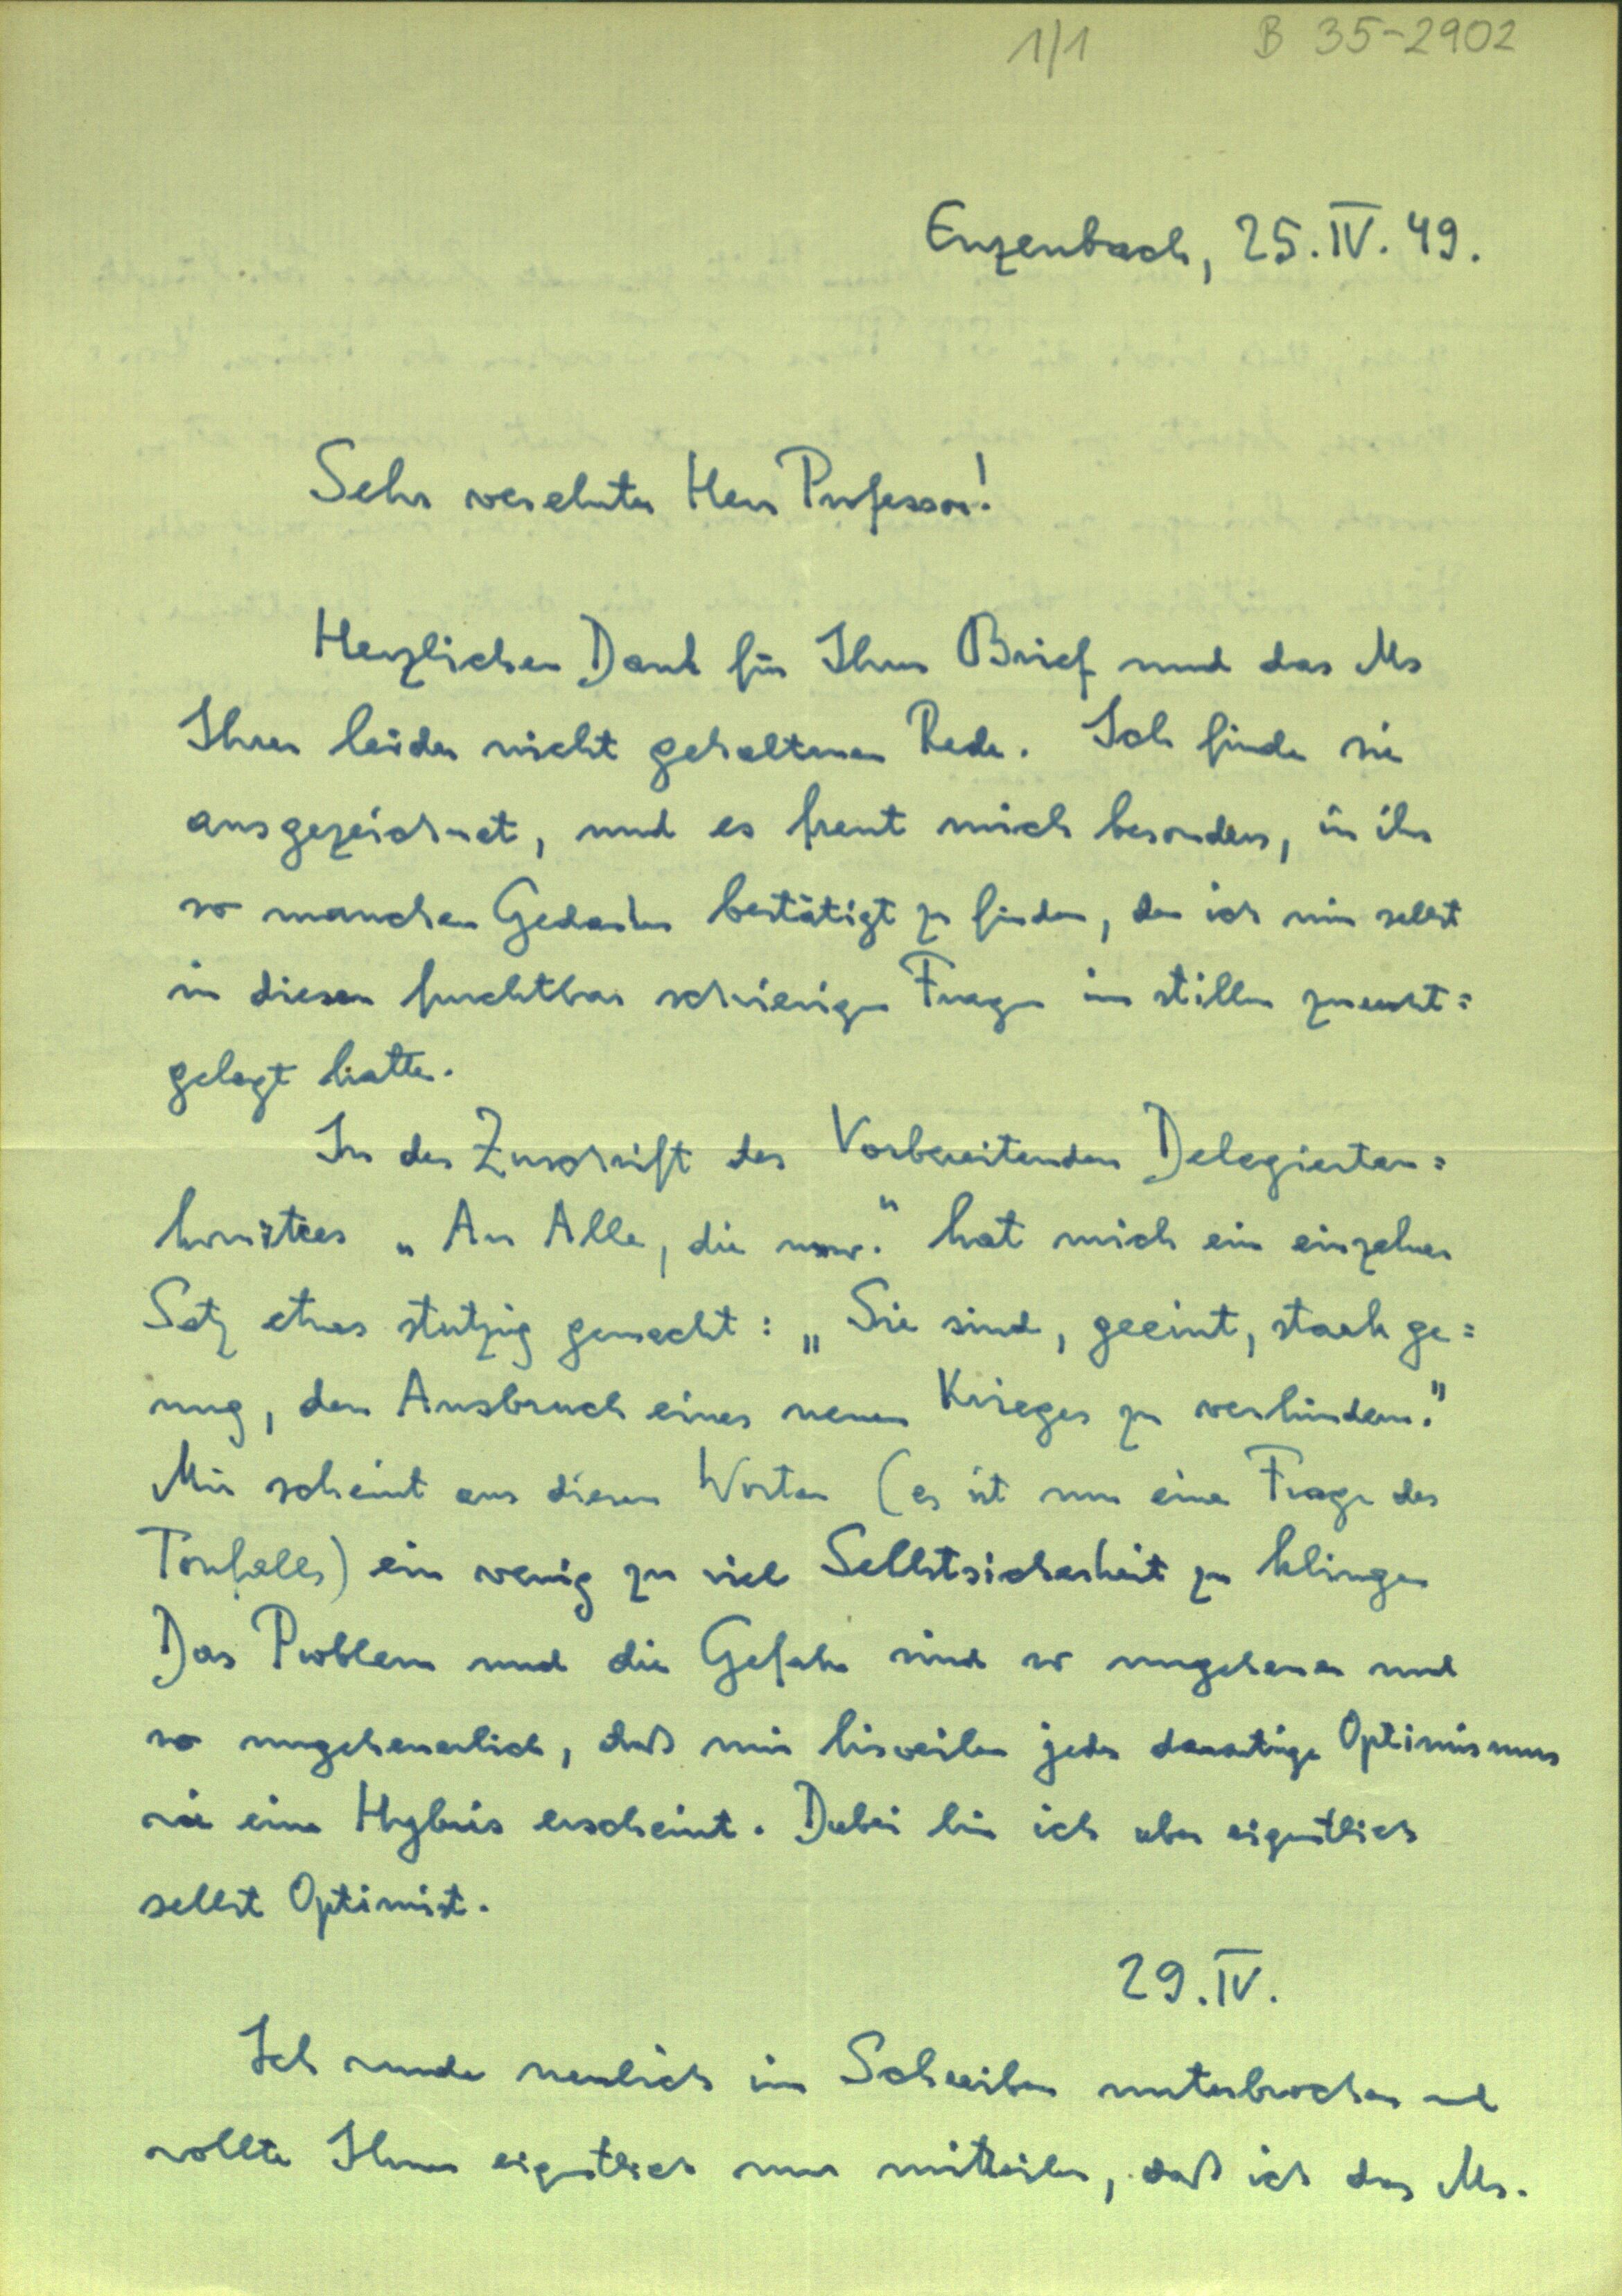 1/1 B 35-2902
Enzenbach, 25.IV.49.
Sehr verehrter Herr Professor!
Herzlichen Dank für Ihren Brief und das Ms
Ihrer leider nicht gehaltenen Rede. Ich finde sie
ausgezeichnet, und es freut mich besonders, in ihr
so manchen Gedanken bestätigt zu finden, den ich mir selbst
in diesen furchtbar schwierigen Fragen im stillen zurecht=
gelegt hatte.
In der Zuschrift des Vorbereitenden Delegierten=
komitees „An Alle, die usw." hat mich ein einzelner
Satz etwas stutzig gemacht: „Sie sind, geeint, stark ge=
nug, den Ausbruch eines neuen Krieges zu verhindern."
Mir scheint aus diesen Worten (es ist nur eine Frage des
Tonfalls) ein wenig zu viel Selbstsicherheit zu klingen
Das Problem und die Gefahr sind so ungeheuer und
so ungeheuerlich, daß mir bisweilen jeder derartige Optimismus
wie eine Hybris erscheint. Dabei bin ich aber eigentlich
selbst Optimist.
29.IV.
Ich wurde neulich im Schreiben unterbrochen und
wollte Ihnen eigentlich nur mitteilen, daß ich das Ms.